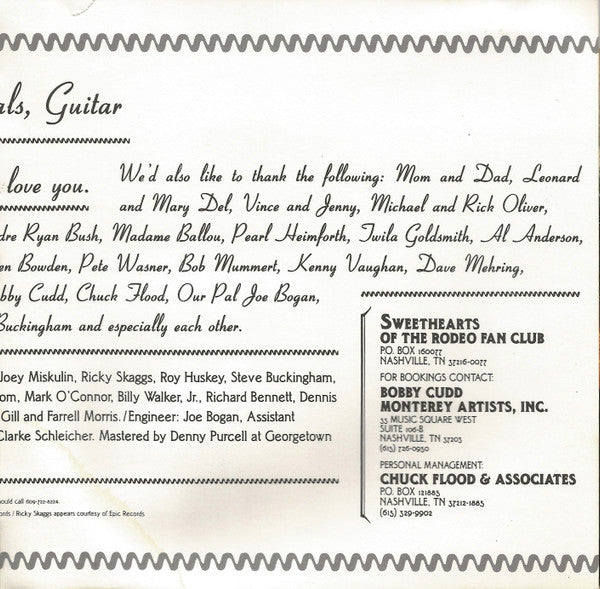 als, Guitar
love you.
We'd also like to thank the following: Mom and Dad, Leonard
and Mary Del, Vince and Jenny, Michael and Rick Oliver,
dre Ryan Bush, Madame Ballou, Pearl Heimforth, Twila Goldsmith, Al Anderson,
en Bowden, Pete Wasner, Bob Mummert, Kenny Vaughan, Dave Mehring,
bby Cudd, Chuck Flood, Our Pal Joe Bogan,
Buckingham and especially each other.
Joey Miskulin, Ricky Skaggs, Roy Huskey, Steve Buckingham,
om, Mark O'Connor, Billy Walker, Jr., Richard Bennett, Dennis
Gill and Farrell Morris./Engineer: Joe Bogan, Assistant
Clarke Schleicher. Mastered by Denny Purcell at Georgetown
hould call 609-722-8224.
ords / Ricky Skaggs appears courtesy of Epic Records
SWEETHEARTS
OF THE RODEO FAN CLUB
P.O. BOX 160077
NASHVILLE, TN 37216-0077
FOR BOOKINGS CONTACT:
BOBBY CUDD
MONTEREY ARTISTS, INC.
33 MUSIC SQUARE WEST
SUITE 106-B
NASHVILLE, TN 37203
(615) 726-0950
PERSONAL MANAGEMENT:
CHUCK FLOOD & ASSOCIATES
P.O. BOX 121885
NASHVILLE, TN 37212-1885
(615) 329-9902